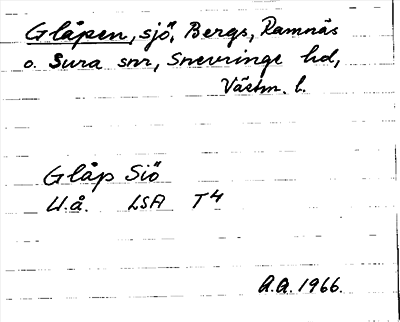 Gläpen, sjö, Bergs, Ramnäs
o. Sura snr, Snevringe hd,
Västm. l.
Gläp Siö
U.å. LSA T4
A.A. 1966.